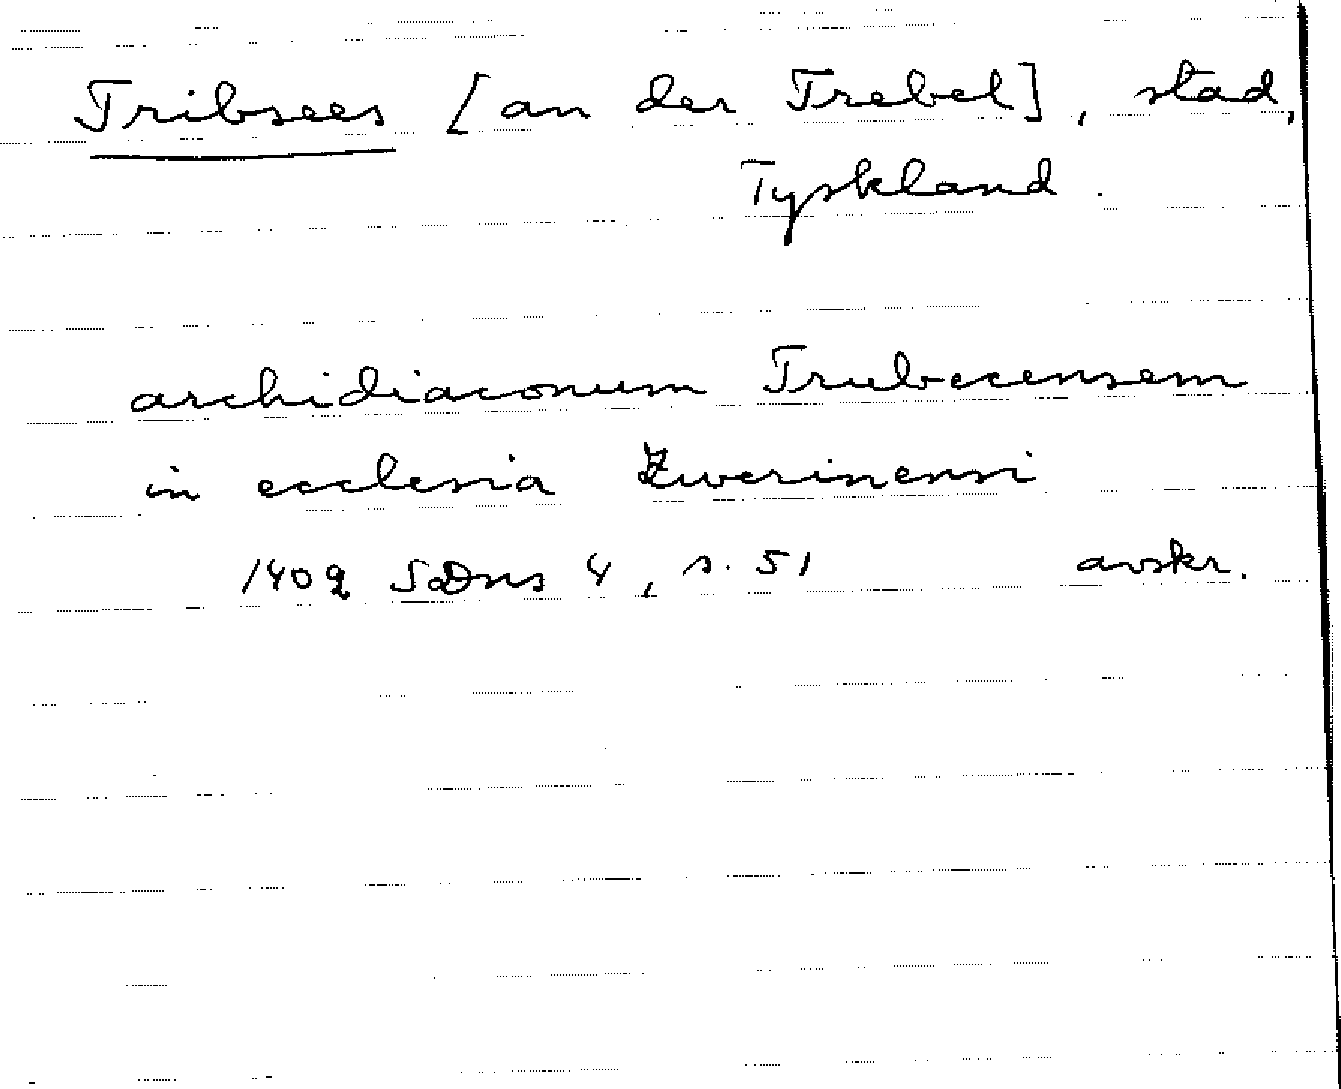 Tribsees [an der Trebel], stad,
Tyskland.
archidiaconum Trubecensem
in ecclesia Zwerinensi
1409 SDns 4, s. 51 avskr.